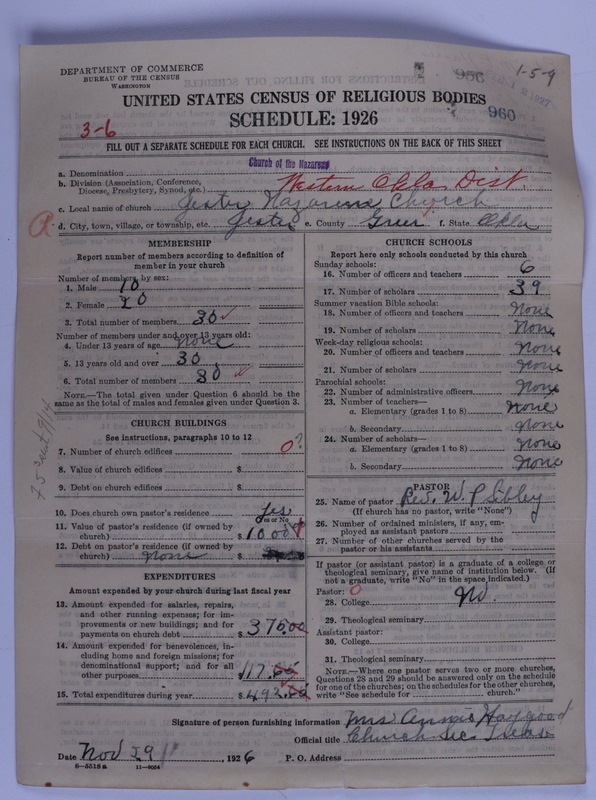 DEPARTMENT OF COMMERCE
BUREAU OF THE CENSUS
WASHINGTON
956
1-5-9
960
UNITED STATES CENSUS OF RELIGIOUS BODIES
SCHEDULE: 1926
3-6
FILL OUT A SEPARATE SCHEDULE FOR EACH CHURCH. SEE INSTRUCTIONS ON THE BACK OF THIS SHEET
a. Denomination Church of the Nazarene
b. Division (Association, Conference, Diocese, Presbytery, Synod, etc.) Western Okla Dist.
c. Local name of church Jester Nazarene Church
d. City, town, village, or township, etc. Jester e. County Greer f. State Okla
MEMBERSHIP
Report number of members according to definition of member in your church
Number of members, by sex:
1. Male 10
2. Female 20
3. Total number of members 30
Number of members under and over 13 years old:
4. Under 13 years of age none
5. 13 years old and over 30
6. Total number of members 30
NOTE.—The total given under Question 6 should be the same as the total of males and females given under Question 3.
CHURCH BUILDINGS
See instructions, paragraphs 10 to 12
7. Number of church edifices 0?
8. Value of church edifices $
9. Debt on church edifices $
10. Does church own pastor's residence yes
Yes or No
11. Value of pastor's residence (if owned by church) $
12. Debt on pastor's residence (if owned by church) none $
EXPENDITURES
Amount expended by your church during last fiscal year
13. Amount expended for salaries, repairs, and other running expenses; for improvements or new buildings; and for payments on church debt $ 375.00
14. Amount expended for benevolences, including home and foreign missions; for denominational support; and for all other purposes $
15. Total expenditures during year $
CHURCH SCHOOLS
Report here only schools conducted by this church
Sunday schools:
16. Number of officers and teachers 6
17. Number of scholars 39
Summer vacation Bible schools:
18. Number of officers and teachers None
19. Number of scholars None
Week-day religious schools:
20. Number of officers and teachers None
21. Number of scholars None
Parochial schools:
22. Number of administrative officers None
23. Number of teachers—
a. Elementary (grades 1 to 8) None
b. Secondary None
24. Number of scholars—
a. Elementary (grades 1 to 8) None
b. Secondary None
PASTOR
25. Name of pastor Rev. W. P. Sibley
(If church has no pastor, write "None")
26. Number of ordained ministers, if any, employed as assistant pastors
27. Number of other churches served by the pastor or his assistants
If pastor (or assistant pastor) is a graduate of a college or theological seminary, give name of institution below. (If not a graduate, write "No" in the space indicated.)
Pastor: 0
28. College No.
29. Theological seminary
Assistant pastor:
30. College
31. Theological seminary
NOTE.—Where one pastor serves two or more churches, Questions 28 and 29 should be answered only on the schedule for one of the churches; on the schedules for the other churches, write "See schedule for church."
Signature of person furnishing information Mrs Annie Haygood
Official title Church Sec Treas
Date Nov 29, 1926 P. O. Address
8-5518a 11-9054